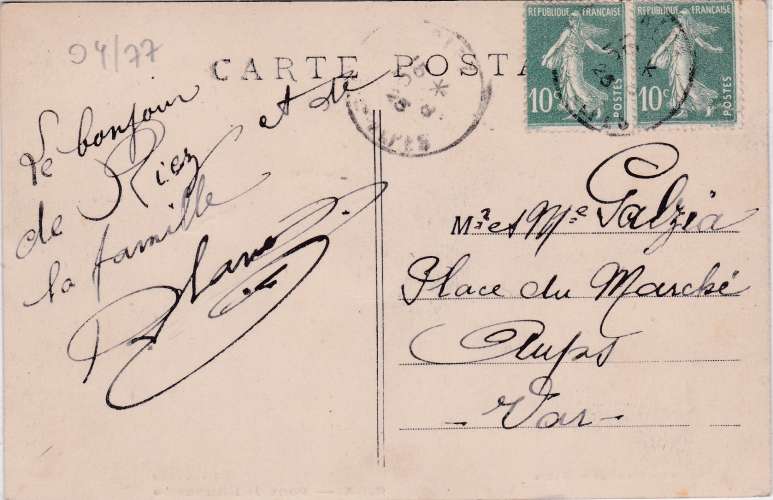 04/77
CARTE POSTA
REPUBLIQUE FRANÇAISE
10c
POSTES
REPUBLIQUE FRANÇAISE
10c
POSTES
Le bonjour
de Riez et de
la famille
Blanc
Mr et Me Galzia
Place du Marché
Aups
- Var -